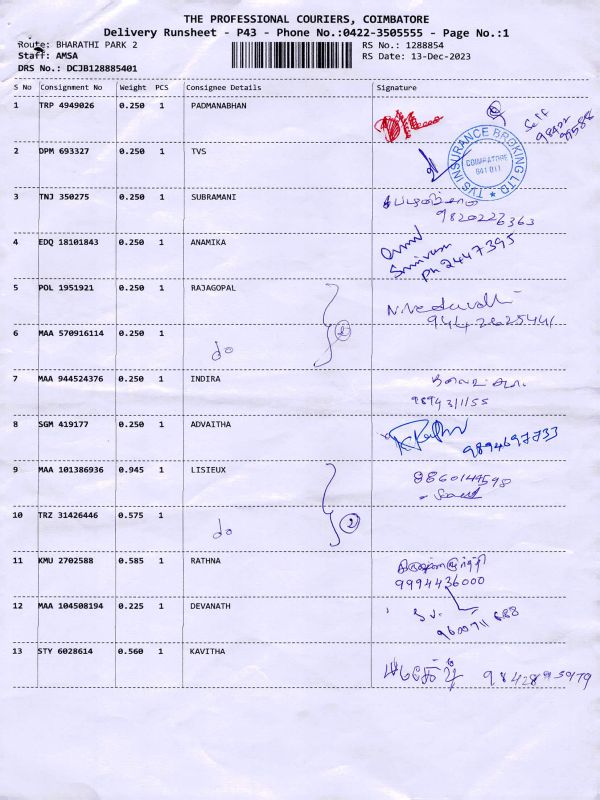 THE PROFESSIONAL COURIERS, COIMBATORE
Delivery Runsheet - P43 - Phone No.:0422-3505555 - Page No.:1
Route: BHARATHI PARK 2
RS No.: 1288854
Staff: AMSA
RS Date: 13-Dec-2023
DRS No.: DCJB128885401
S No Consignment No Weight PCS Consignee Details Signature
1 TRP 4949026 0.250 1 PADMANABHAN
Self
TVS INSURANCE BROKING LTD
COIMBATORE
641 011
2 DPM 693327 0.250 1 TVS
3 TNJ 350275 0.250 1 SUBRAMANI
9820226363
4 EDQ 18101843 0.250 1 ANAMIKA
Ph 2447395
5 POL 1951921 0.250 1 RAJAGOPAL
9442625441
6 MAA 570916114 0.250 1 do 2
7 MAA 944524376 0.250 1 INDIRA
9894311155
8 SGM 419177 0.250 1 ADVAITHA
9894697733
9 MAA 101386936 0.945 1 LISIEUX
10 TRZ 31426446 0.575 1 do 2
11 KMU 2702588 0.585 1 RATHNA
9994436000
12 MAA 104508194 0.225 1 DEVANATH
S.V.
13 STY 6028614 0.560 1 KAVITHA